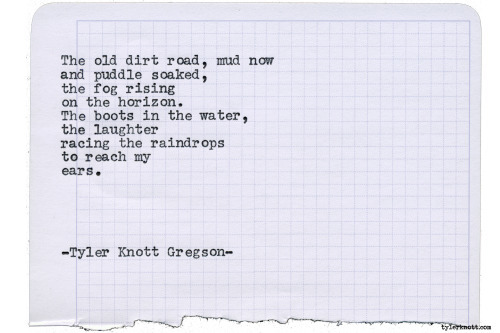 The old dirt road, mud now
and puddle soaked,
the fog rising
on the horizon.
The boots in the water,
the laughter
racing the raindrops
to reach my
ears.
-Tyler Knott Gregson-
tylerknott.com